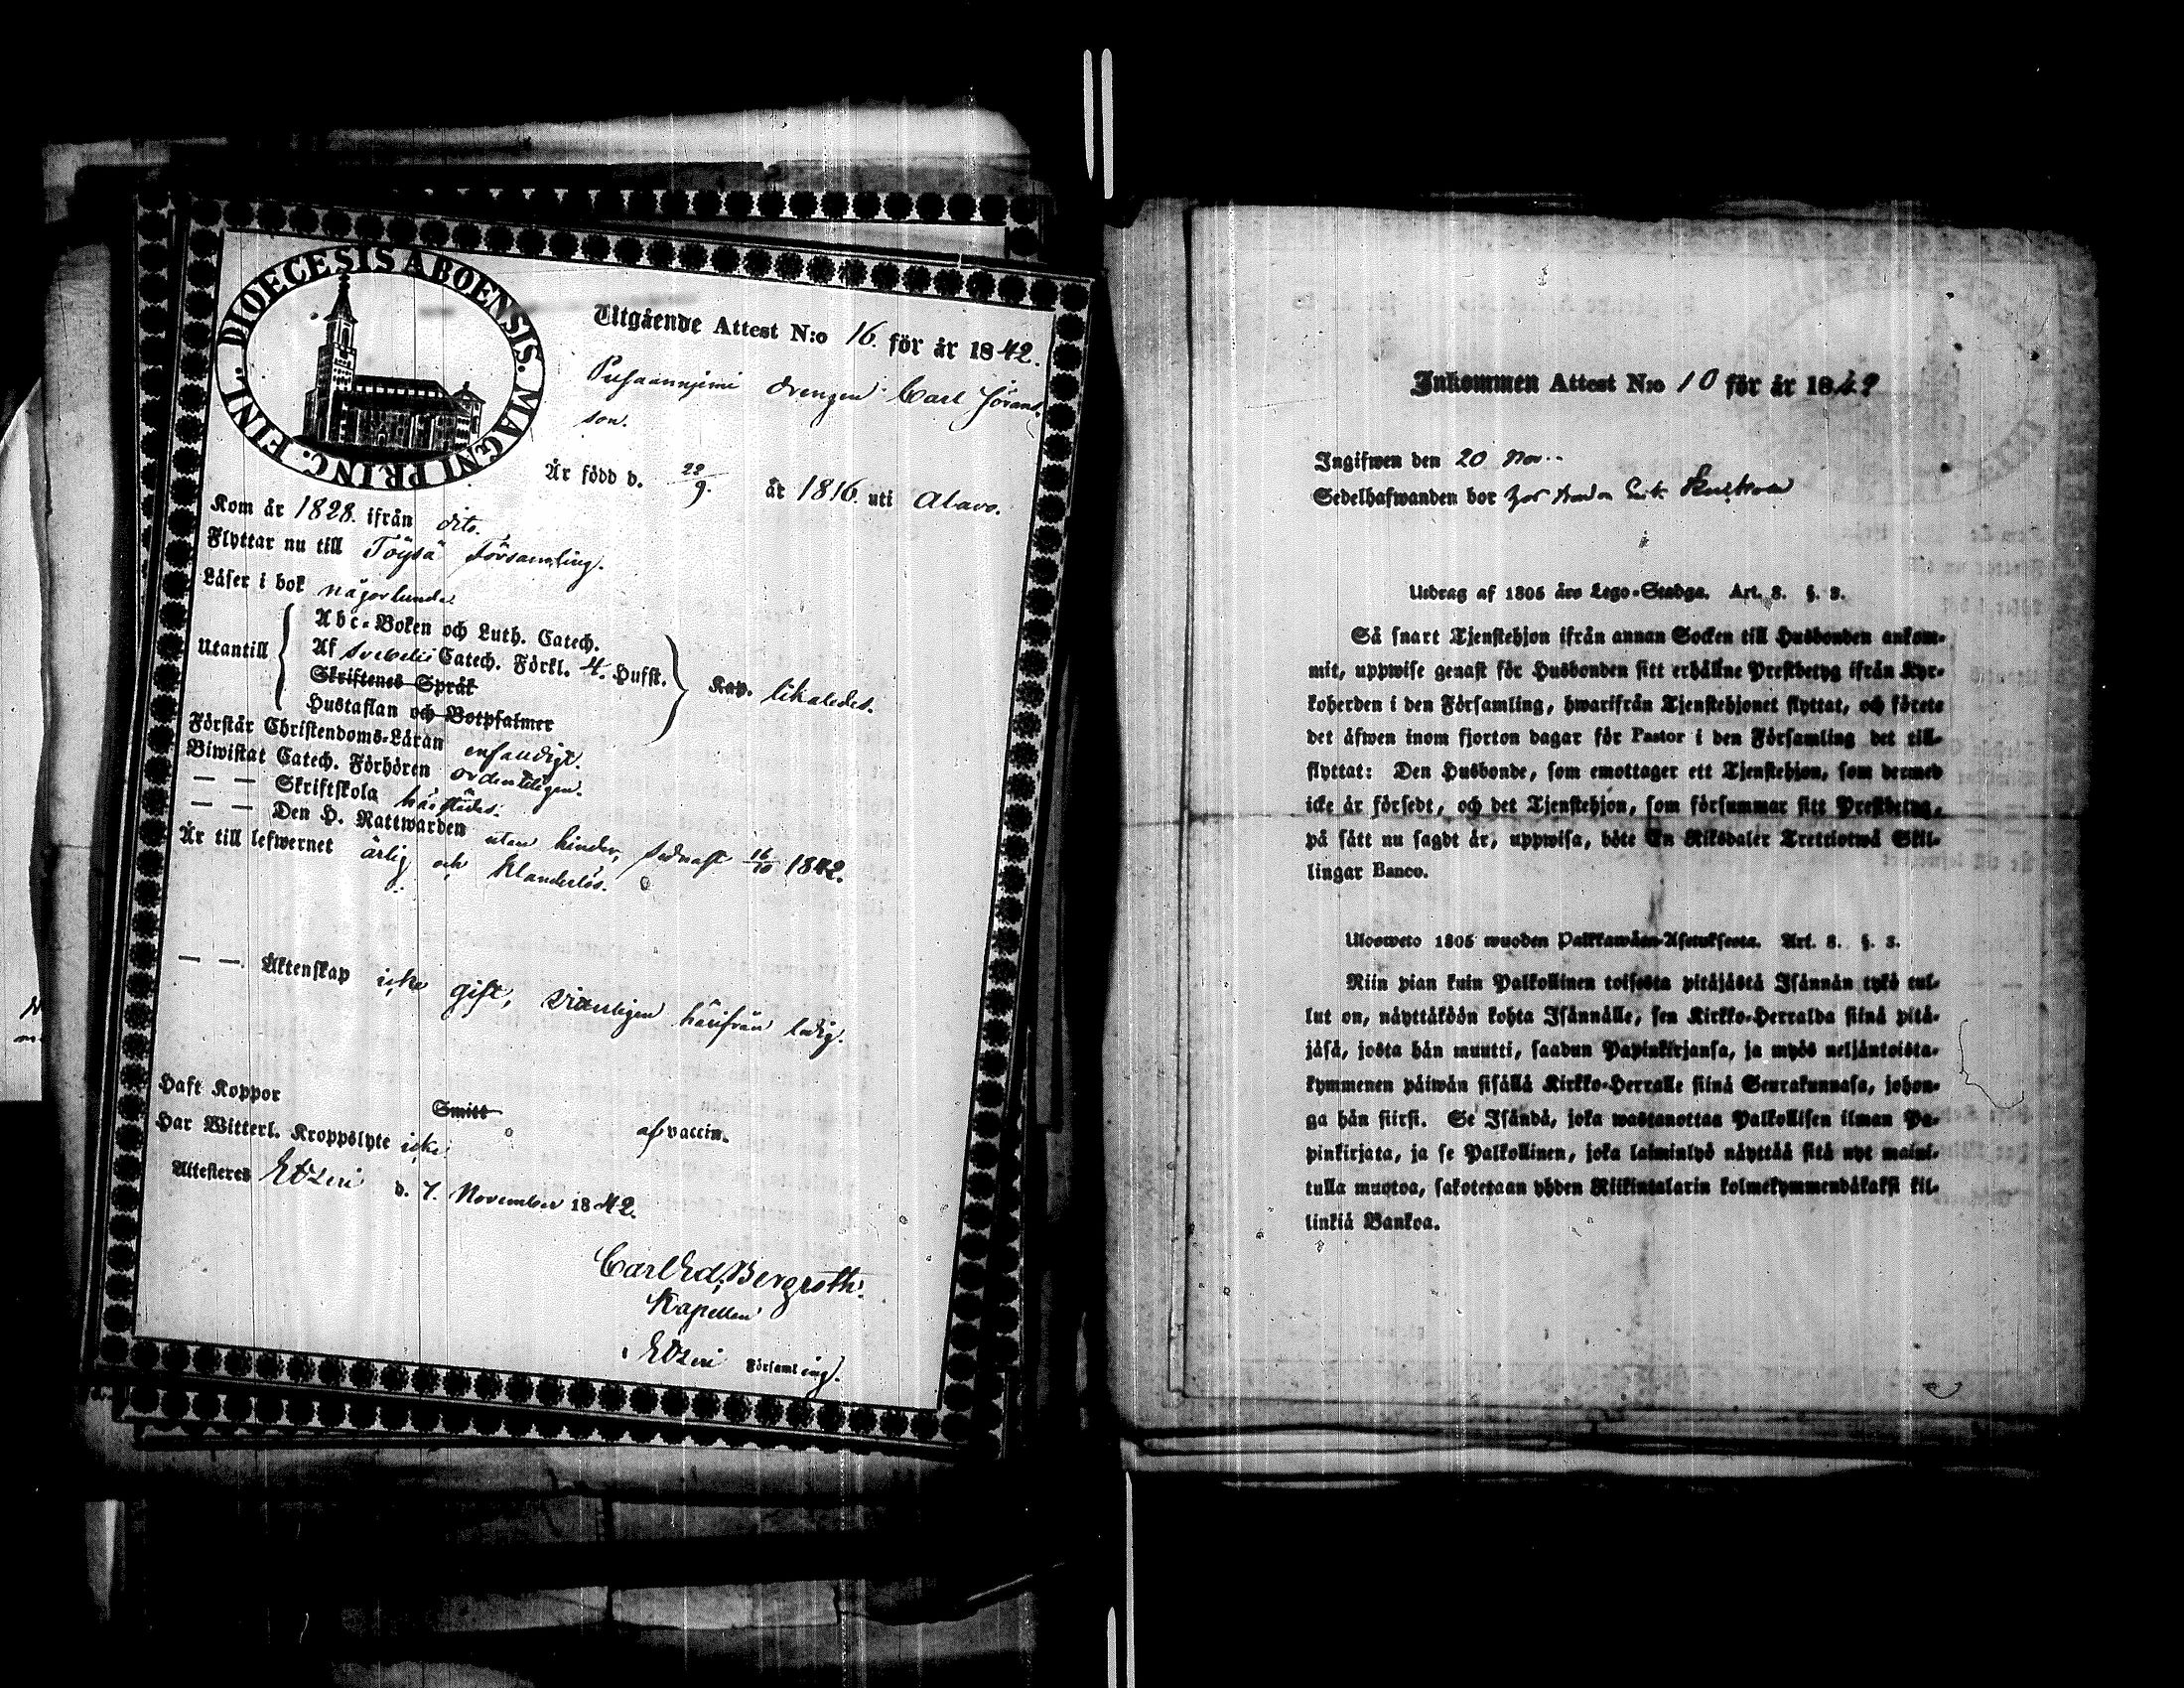 DIOECESIS ABOENSIS. MAGNI PRINC. FINL.
Utgående Attest N:o 16. för år 1842.
drengen Carl Jörans-
son.
Är född d. 22/9. år 1816. uti Alavo.
Kom år 1828. ifrån dito.
Flyttar nu till Töysä Församling.
Läser i bok någorlunda.
Utantill
Abc-Boken och Luth. Catech.
Af Svebelii Catech. Förkl. 4. Hufst.
Skriftenes Språk
Hustaflan och Botpsalmer
Kap. likaledes.
Förstår Christendoms-Läran enfaldigt.
Biwistat Catech. Förhören ordentligen.
— — Skriftskola härstädes.
— — Den H. Nattwarden utan hinder, sednast 16/10 1842.
Är till lefwernet ärlig och klanderlös.
— — Äktenskap icke gift, härifrån ledig.
Haft Koppor Smitt- af vaccin.
Har Witterl. Kroppslyte icke
Attesteras Etzeri d. 7. November 1842.
Carl Ed. Bergroth.
Kapellan
i Etzeri Församling.
Inkommen Attest N:o 10 för år 1842
Ingifwen den 20 Nov.
Sedelhafwanden bor
Utdrag af 1805 års Lego-Stadga. Art. 8. §. 3.
Så snart Tjenstehjon ifrån annan Socken till Husbonden ankom-
mit, uppwise genast för Husbonden sitt erhållne Prestbetyg ifrån Kyr-
koherden i den Församling, hwarifrån Tjenstehjonet flyttat, och förete
det äfwen inom fjorton dagar för Pastor i den Församling det till-
flyttat: Den Husbonde, som emottager ett Tjenstehjon, som dermed
icke är försedt, och det Tjenstehjon, som försummar sitt Prestbetyg,
på sätt nu sagdt är, uppwisa, böte En Riksdaler Trettiotwå Skil-
lingar Banco.
Ulosweto 1805 wuoden Palkkawäen-Asetuksesta. Art. 8. §. 3.
Niin pian kuin Palkollinen toisesta pitäjästä Isännän tykö tul-
lut on, näyttäköön kohta Isännälle, sen Kirkko-Herralda siinä pitä-
jäsä, josta hän muutti, saadun Papinkirjansa, ja myös neljäntoista-
kymmenen päiwän sisällä Kirkko-Herralle siinä Seurakunnasa, johon-
ga hän siirsi. Se Isändä, joka wastanottaa Palkollisen ilman Pa-
pinkirjata, ja se Palkollinen, joka laiminlyö näyttää sitä nyt maini-
tulla muotoa, sakotetaan yhden Riikintalarin kolmekymmendäkaksi kil-
linkiä Bankoa.